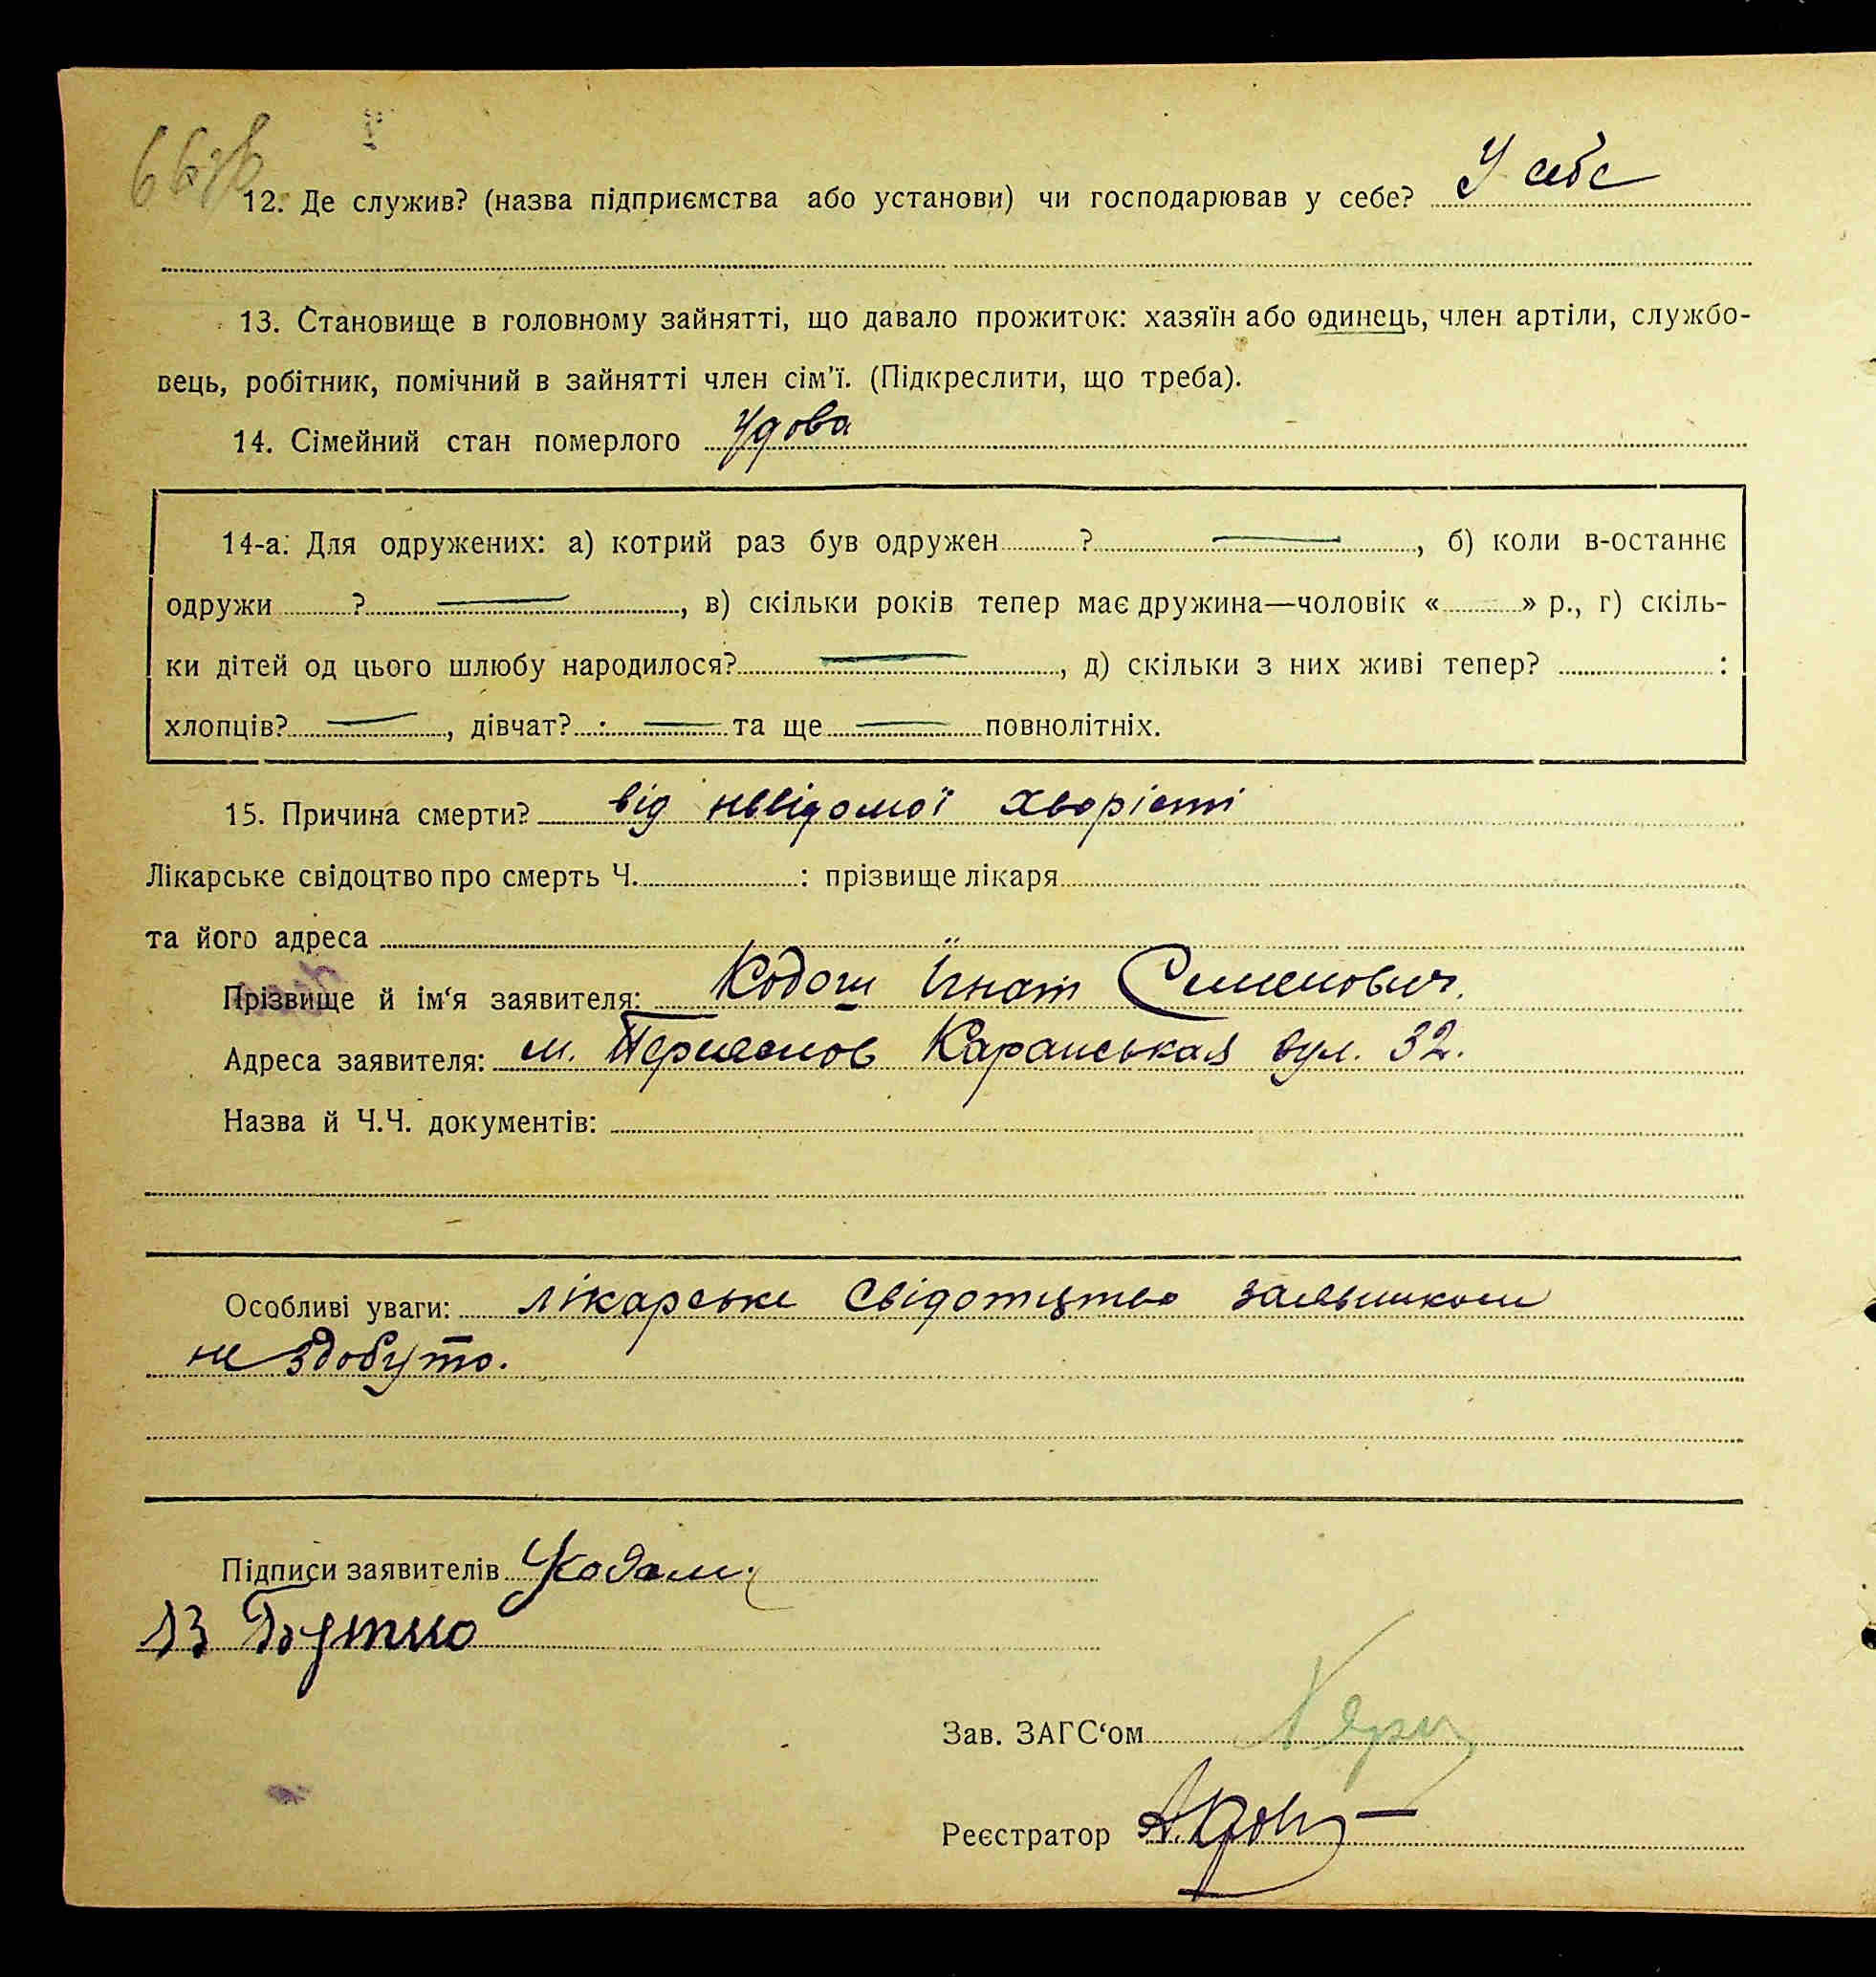 12. Де служив? (назва підприємства або установи) чи господарював у себе? У себе
13. Становище в головному зайнятті, що давало прожиток: хазяїн або одинець, член артіли, службо-
вець, робітник, помічний в зайнятті член сім'ї. (Підкреслити, що треба).
14. Сімейний стан померлого Удова
14-а. Для одружених: а) котрий раз був одружен ? —, б) коли в-останнє
одружи ? —, в) скільки років тепер має дружина—чоловік « » р., г) скіль-
ки дітей од цього шлюбу народилося? —, д) скільки з них живі тепер? :
хлопців? —, дівчат? — та ще — повнолітніх.
15. Причина смерти? від невідомої хворісти
Лікарське свідоцтво про смерть Ч. : прізвище лікаря
та його адреса
Прізвище й ім'я заявителя: Кодаш Ігнат Семенович.
Адреса заявителя: м. Переяслов Каранськая вул. 32.
Назва й Ч.Ч. документів:
Особливі уваги: лікарське свідотцтво заявником
не здобуто.
Підписи заявителів
Зав. ЗАГС'ом
Реєстратор